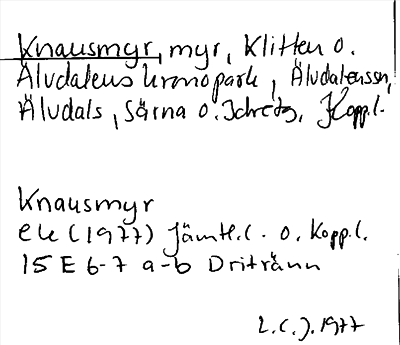 Knausmyr, myr, Klitten o.
Älvdalens kronopark, Älvdalens sn,
Älvdals, Särna o. Idre tg, Kopp.l.
Knausmyr
ek (1977) Jämtl.l. o. Kopp.l.
15 E 6-7 a-b Dritränn
L.C.J. 1977